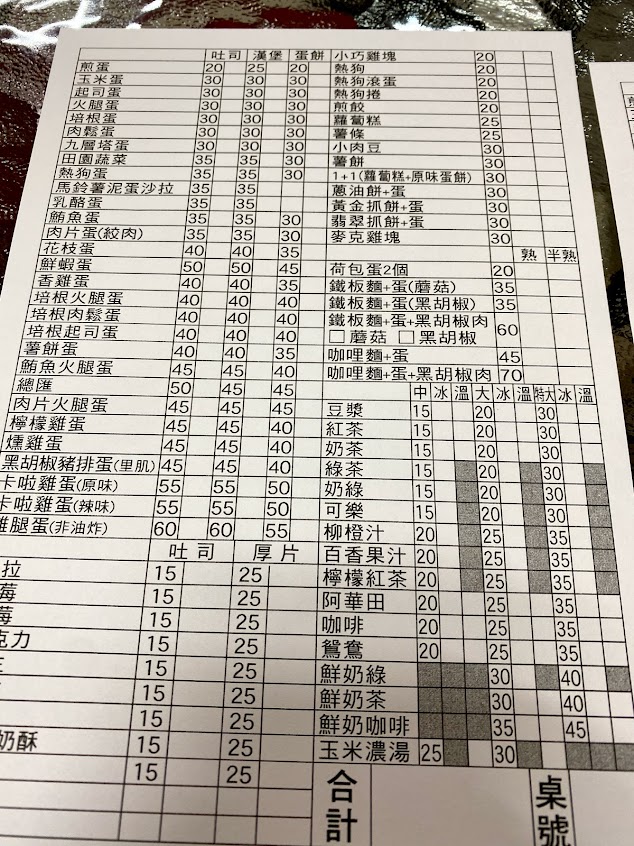 吐司 漢堡 蛋餅
煎蛋 20 25 20
玉米蛋 30 30 30
起司蛋 30 30 30
火腿蛋 30 30 30
培根蛋 30 30 30
肉鬆蛋 30 30 30
九層塔蛋 30 30 30
田園蔬菜 35 35 30
熱狗蛋 35 35 30
馬鈴薯泥蛋沙拉 35 35
乳酪蛋 35 35
鮪魚蛋 35 35 30
肉片蛋(絞肉) 35 35 30
花枝蛋 40 40 35
鮮蝦蛋 50 50 45
香雞蛋 40 40 35
培根火腿蛋 40 40 40
培根肉鬆蛋 40 40 40
培根起司蛋 40 40 40
薯餅蛋 40 40 35
鮪魚火腿蛋 45 45 40
總匯 50 45 45
肉片火腿蛋 45 45 40
檸檬雞蛋 45 45 40
燻雞蛋 45 45 40
黑胡椒豬排蛋(里肌) 45 45 40
卡啦雞蛋(原味) 55 55 50
卡啦雞蛋(辣味) 55 55 50
雞腿蛋(非油炸) 60 60 55
吐司 厚片
拉 15 25
莓 15 25
莓 15 25
克力 15 25
15 25
15 25
15 25
奶酥 15 25
15 25
小巧雞塊 20
熱狗 20
熱狗滾蛋 20
熱狗捲 20
煎餃 20
蘿蔔糕 25
薯條 25
小肉豆 30
薯餅 30
1+1(蘿蔔糕+原味蛋餅) 30
蔥油餅+蛋 30
黃金抓餅+蛋 30
翡翠抓餅+蛋 30
麥克雞塊 30
熟 半熟
荷包蛋2個 20
鐵板麵+蛋(蘑菇) 35
鐵板麵+蛋(黑胡椒) 35
鐵板麵+蛋+黑胡椒肉 60
□ 蘑菇 □ 黑胡椒
咖哩麵+蛋 45
咖哩麵+蛋+黑胡椒肉 70
中 冰 溫 大 冰 溫 特大 冰 溫
豆漿 15 20 30
紅茶 15 20 30
奶茶 15 20 30
綠茶 15 20 30
奶綠 15 20 30
可樂 15 20 30
柳橙汁 20 25 35
百香果汁 20 25 35
檸檬紅茶 20 25 35
阿華田 20 25 35
咖啡 20 25 35
鴛鴦 20 25 35
鮮奶綠 30 40
鮮奶茶 30 40
鮮奶咖啡 35 45
玉米濃湯 25 30
合計
桌號